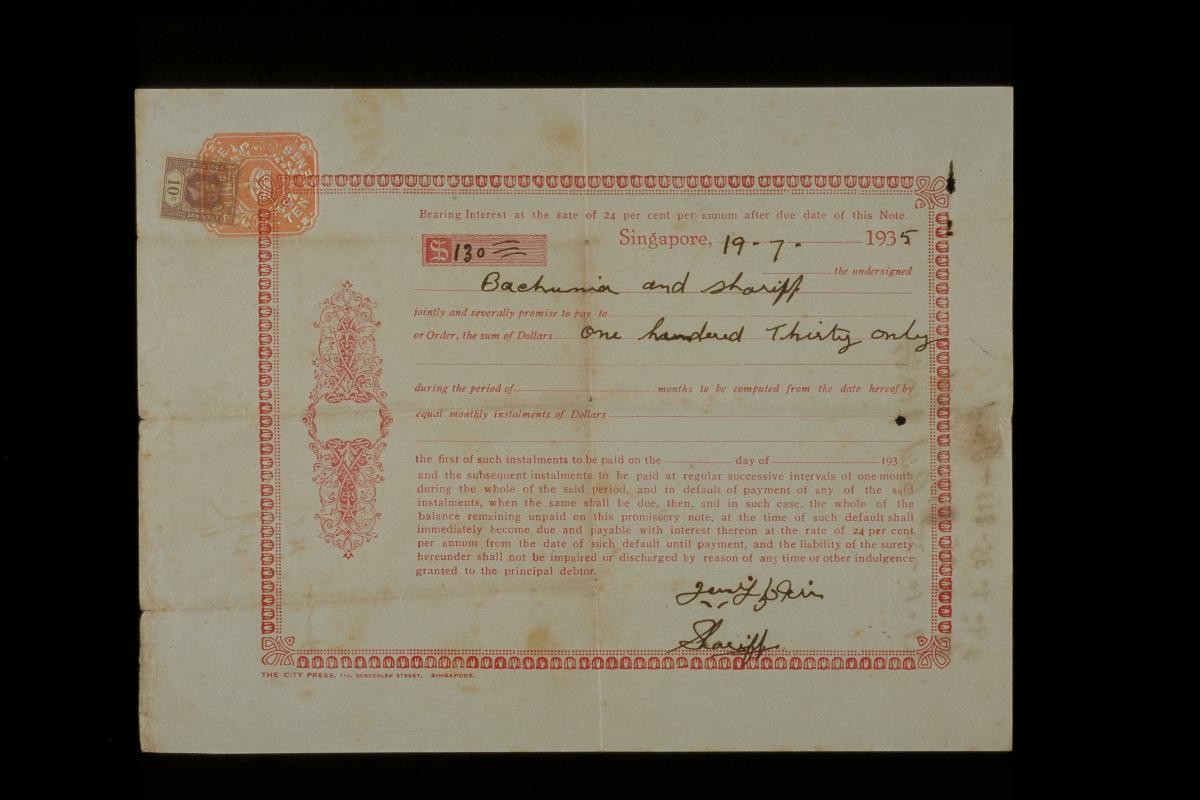 10c
TEN
Bearing Interest at the rate of 24 per cent per annum after due date of this Note.
Singapore, 19-7- 1935
$ 130
the undersigned
Bachumia and Shariff
jointly and severally promise to pay to
or Order, the sum of Dollars one hundred Thirty only
during the period of months to be computed from the date hereof by
equal monthly instalments of Dollars
the first of such instalments to be paid on the day of 193
and the subsequent instalments to be paid at regular successive intervals of one month
during the whole of the said period, and in default of payment of any of the said
instalments, when the same shall be due, then, and in such case, the whole of the
balance remaining unpaid on this promissory note, at the time of such default shall
immediately become due and payable with interest thereon at the rate of 24 per cent
per annum from the date of such default until payment, and the liability of the surety
hereunder shall not be impaired or discharged by reason of any time or other indulgence
granted to the principal debtor.
Shariff
THE CITY PRESS, BENCOOLEN STREET, SINGAPORE.